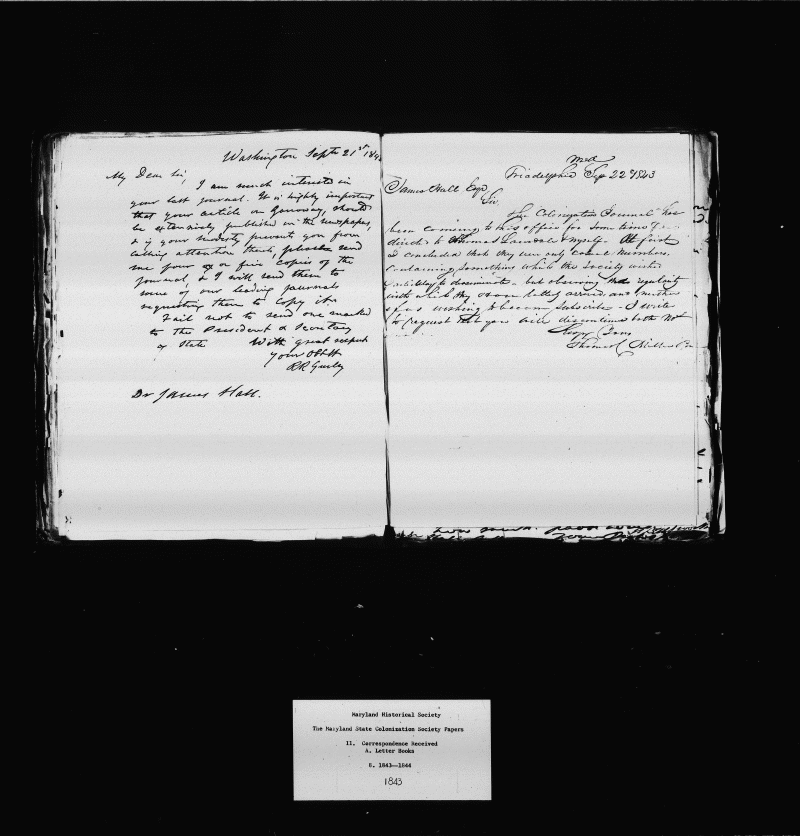 Washington Septr 21st 184
My Dear Sir,
I am much interested in
your last journal. It is highly important
that your article on should
be extensively published in the newspapers,
& if your modesty prevents you from
calling attention thereto, please send
me four or five copies of the
Journal, & I will send them to
some of our leading journals
requesting them to copy it.
Fail not to send one marked
to the President & Secretary
of State With great respect
your Obt St
RR Gurley
Dr James Hall.
Md
Triadelphia Sep 22 1843
James Hall Esq
Sir
The Colonization Journal has
been coming to this office for some time
directed to Thomas Lansdale & myself. At first
I concluded that they were only
containing something which the Society wished
to disseminate - but observing the regularity
with which they have lately arrived and neither
of us wishing to become subscribers I write
to request that you will discontinue both Nos
Yours
Thomas
Maryland Historical Society
The Maryland State Colonization Society Papers
II. Correspondence Received
A. Letter Books
8. 1843--1844
1843